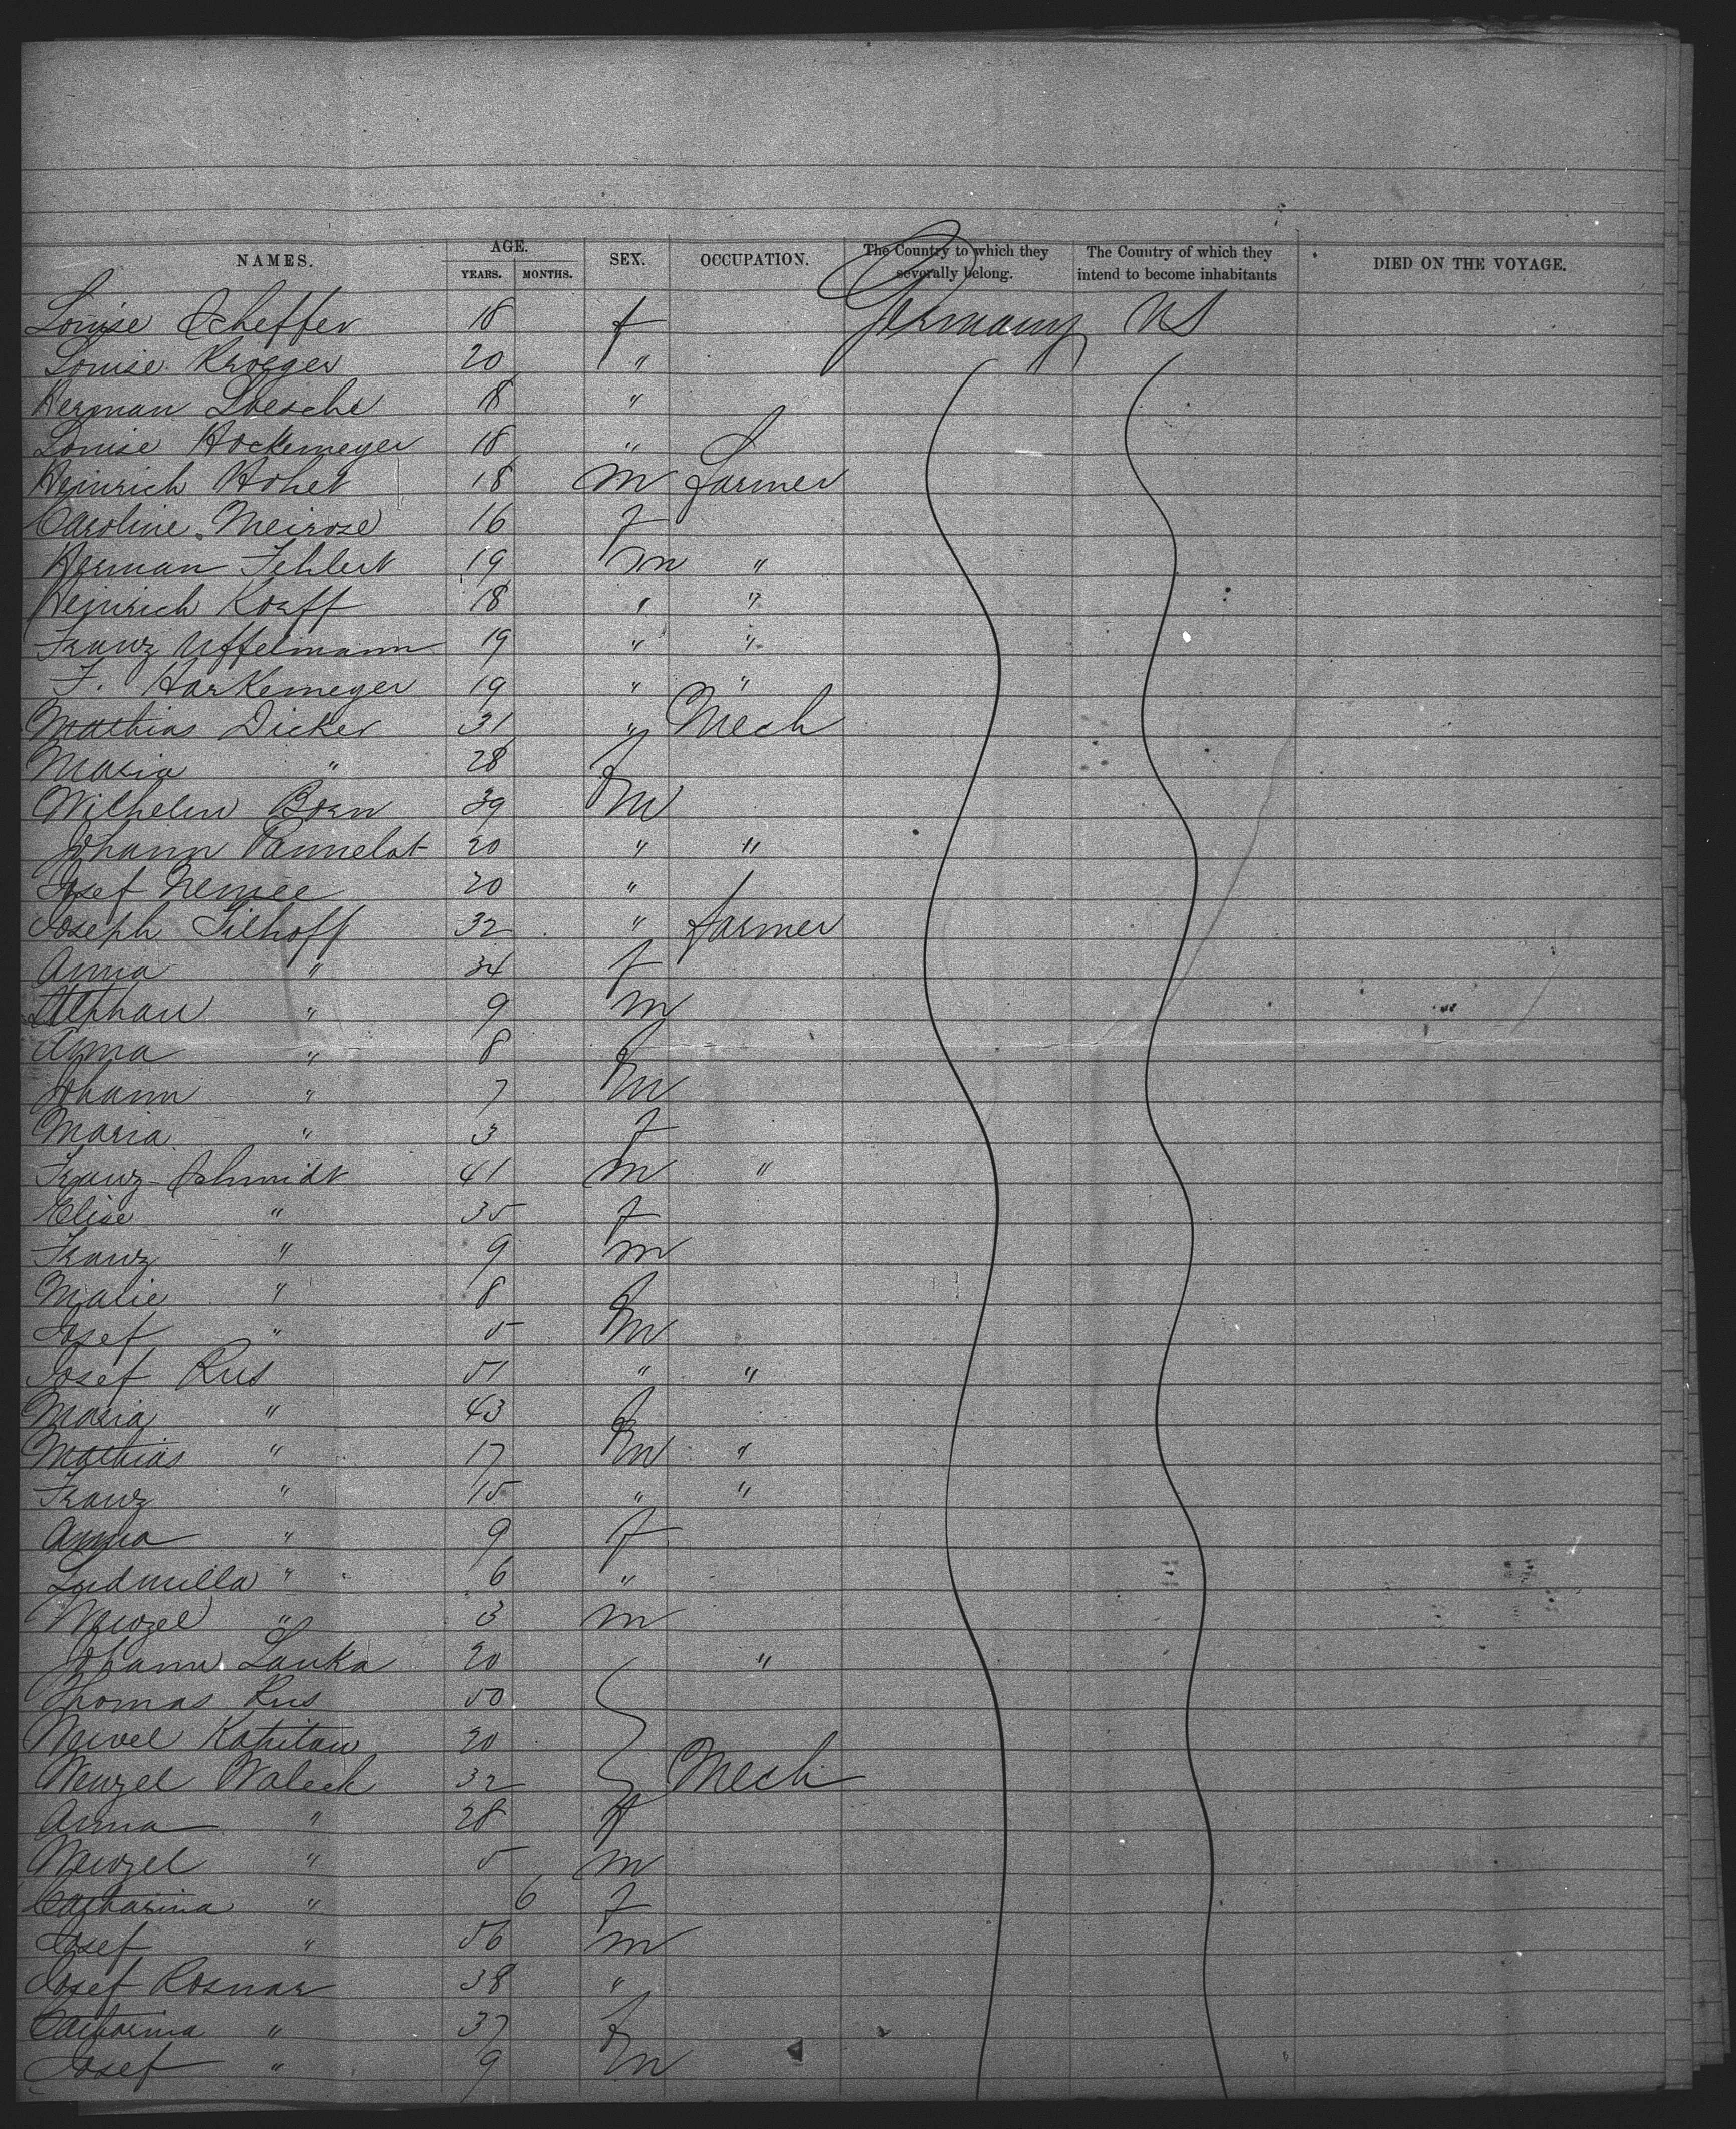 NAMES. AGE. YEARS. MONTHS. SEX. OCCUPATION. The Country to which they severally belong. The Country of which they intend to become inhabitants DIED ON THE VOYAGE.
Louise Scheffer 18 f Germany US
Louise Kroeger 20 "
Herman Loesche 18 "
Louise Hockemeyer 18 "
Heinrich Hohet 18 m farmer
Caroline Meirose 16 f
Herman Fehlert 19 m "
Heinrich Korff 18 " "
Franz Uffelmann 19 " "
F. Harkemeyer 19 " "
Mathias Dicker 31 " Mech
Maria " 28 f
Wilhelm Born 39 m
Johann Pannelot 20 " "
Josef Nemee 20 "
Joseph Filhoff 32 " farmer
Anna " 34 f
Stephan " 9 m
Anna " 8 f
Johann " 7 m
Maria " 3 f
Franz Schmidt 41 m "
Elise " 35 f
Franz " 9 m
Malie " 8 f
Josef " 5 m
Josef Rus 51 " "
Maria " 43 f
Mathias " 17 m "
Franz " 15 " "
Anna " 9 f
Ludmilla " 6 "
Wenzel " 3 m
Johann Lanka 20 "
Thomas Rus 50
20
Wenzel Waleck 32 Mech
Anna " 28 f
Wenzel " 5 m
Catharina " 6 f
Josef " 56 m
Josef Rosnar 38 "
Catharina " 37 f
Josef " 9 m